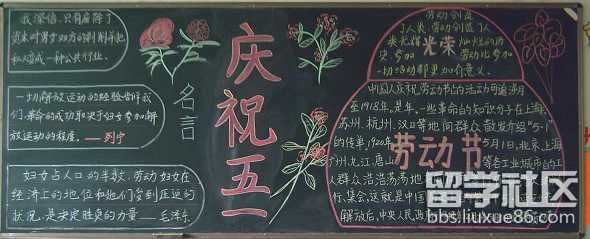 我深信,只有废除了
资本对男女双方的剥削并把
私人变成一种公共行业.
一切解放运动的经验告诉我
们,革命的成功取决于妇女参加解
放运动的程度。——列宁
妇女占人口的半数,劳动妇女在
经济上的地位和他们受到压迫的
状况,是决定胜负的力量——毛泽东
名言
庆祝五一
劳动创造
了人类,劳动创造了人
光荣
史.参加
一切活动都更加有意义.
中国人庆祝劳动节的活动可追溯
至1918年,是年,一些革命的知识分子在上海、
苏州、杭州、汉口等地向群众散发介绍"5-1"
的传单.1920年
5月1日,北京、上海
广州、九江、唐山
等各工业城市的工
劳动节
人群众浩浩荡荡地
行、集会,这就是中国
解放后,中央人民政
留学社区
bbs.liuxue86.com